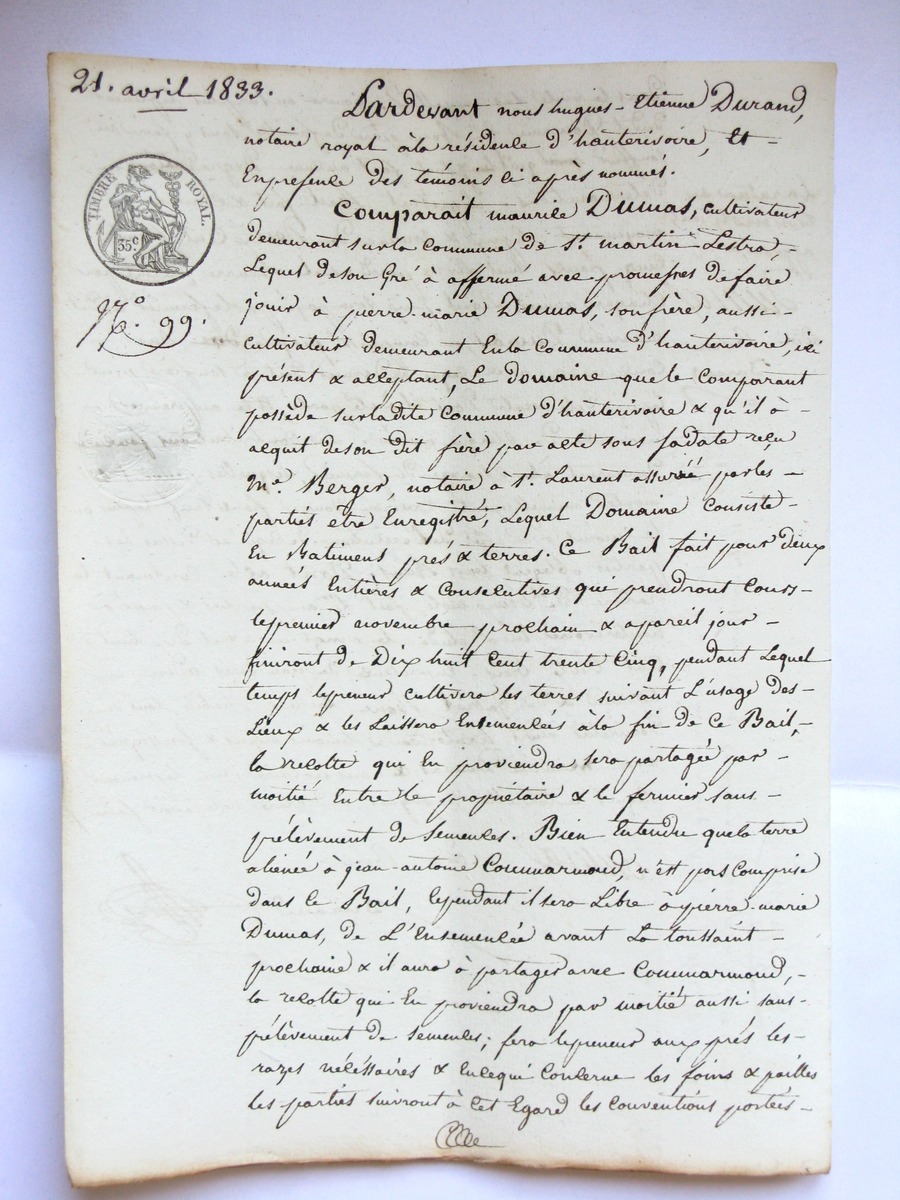 21. avril 1833.
TIMBRE ROYAL.
35c
No. 99.
Pardevant nous hugues-Etienne Durand,
notaire royal à la résidence d'hauterivoire, Et -
En présence des témoins ci après nommés.
Comparait maurice Dumas, cultivateur
demeurant sur la commune de St. martin Lestra,-
Lequel de son Gré à affermé avec promesses de faire
jouir à pierre-marie Dumas, son frère, aussi-
cultivateur demeurant En la commune d'hauterivoire, ici
présent & acceptant, Le Domaine que le Comparant
possède sur ladite commune d'hauterivoire & qu'il à-
acquit de son dit frère par acte sous sa date reçu
Me. Berger, notaire à St. Laurent assuré par les-
parties etre Enregistré, Lequel Domaine Consiste-
En Batimens prés & terres. Ce Bail fait pour deux
années Entières & Consécutives qui prendront Cours-
le premier novembre prochain & a pareil jour -
finiront de Dix huit Cent trente Cinq, pendant Lequel
temps le preneur cultivera les terres suivant L'usage des-
Lieux & les Laissera Ensemencées à la fin de Ce Bail,-
la recolte qui En proviendra sera partagée par -
moitié Entre le propriétaire & le fermier sans -
prélèvement de Semences. Bien Entendu que la terre
alienée à jean-antoine Commarmond, n'est pas Comprise
dans Ce Bail, Cependant il sera Libre à pierre-marie
Dumas, de L'Ensemencée avant La toussaint -
prochaine & il aura à partager avec Commarmond,-
la recolte qui En proviendra par moitié aussi sans-
prélèvement de semences; fera le preneur aux prés les-
razes nécéssaires & En Ce qui Concerne les foins & pailles
les parties suivront à Cet Egard les Conventions portées-